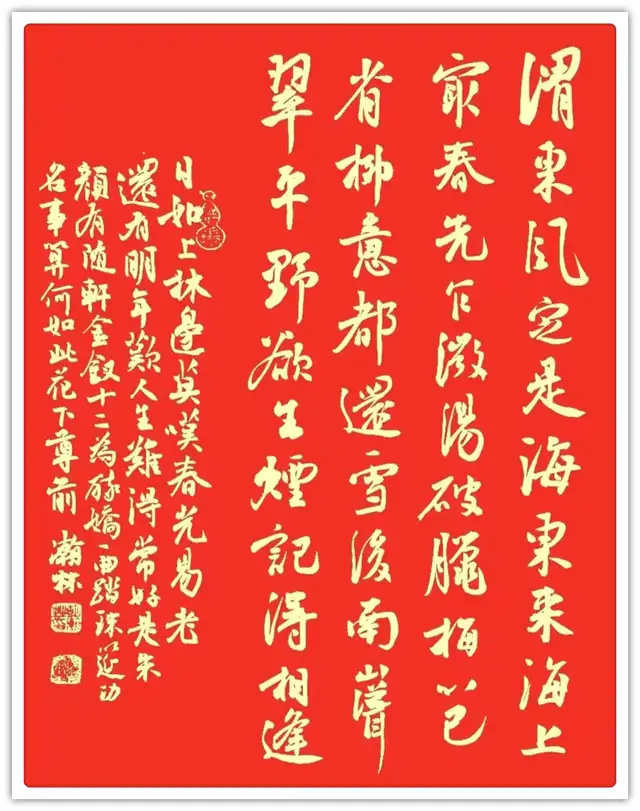 謂東風定是海東来海上
最春先乍微陽破臘梅心已
省柳意都還雪後南山聳
翠平野欲生煙記得相逢
日如上林邊莫嘆春光易老
還有明年歎人生難得常好是朱
顏有随軒金釵十二為醉嬌一曲踏珠筵功
名事算何如此花下尊前 瀚林